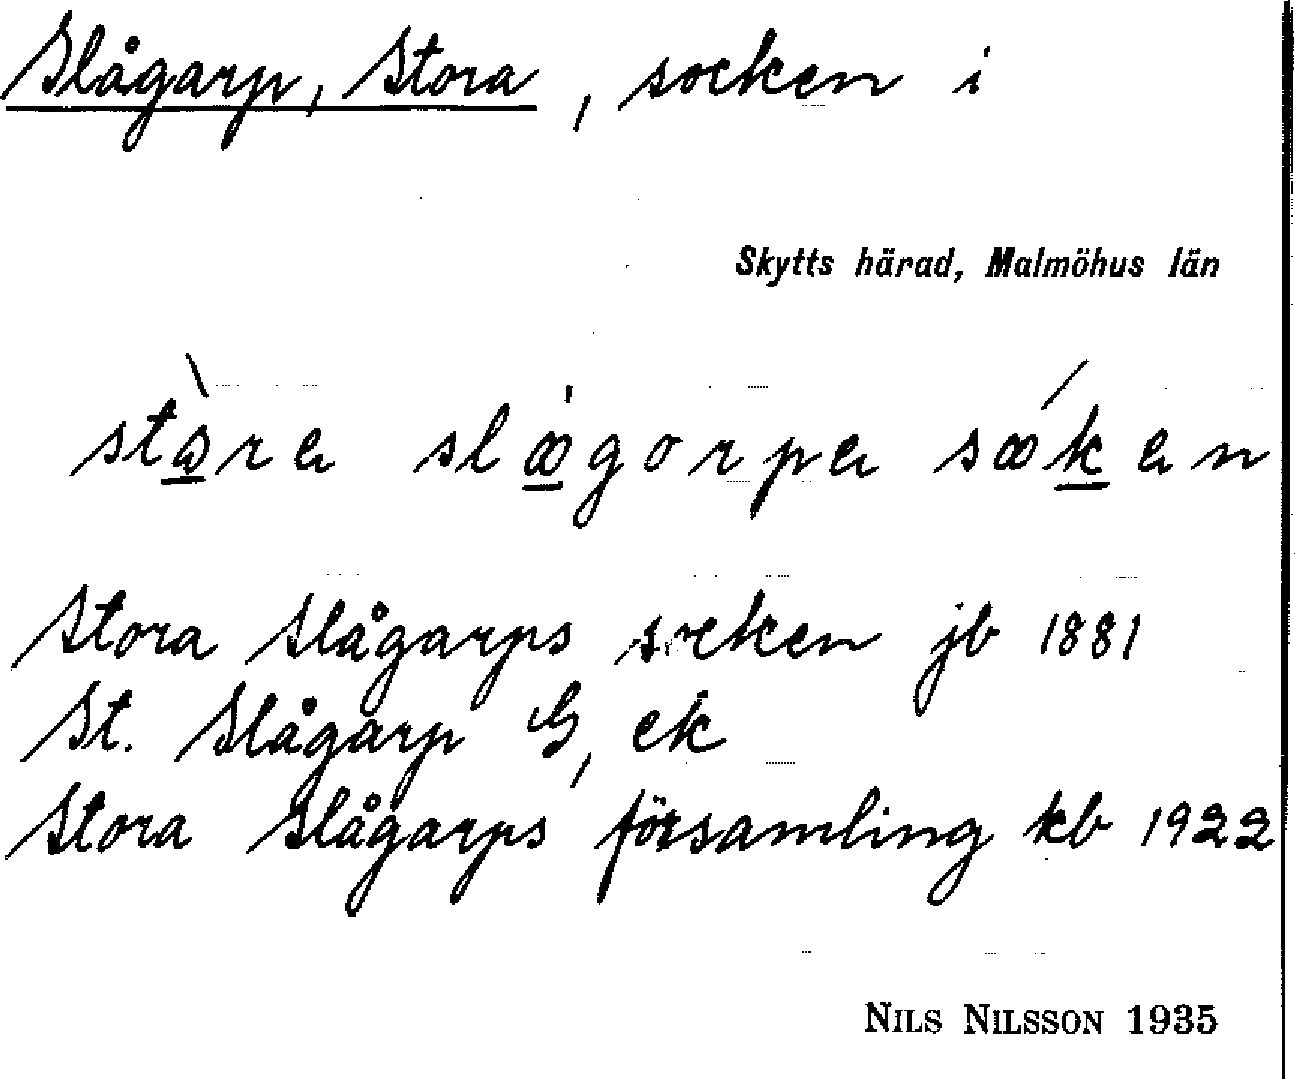 Slågarp, Stora, socken i
Skytts härad, Malmöhus län
Stora Slågarps socken jb 1881
St. Slågarp G, ek
Stora Slågarps församling kb 1922
NILS NILSSON 1935